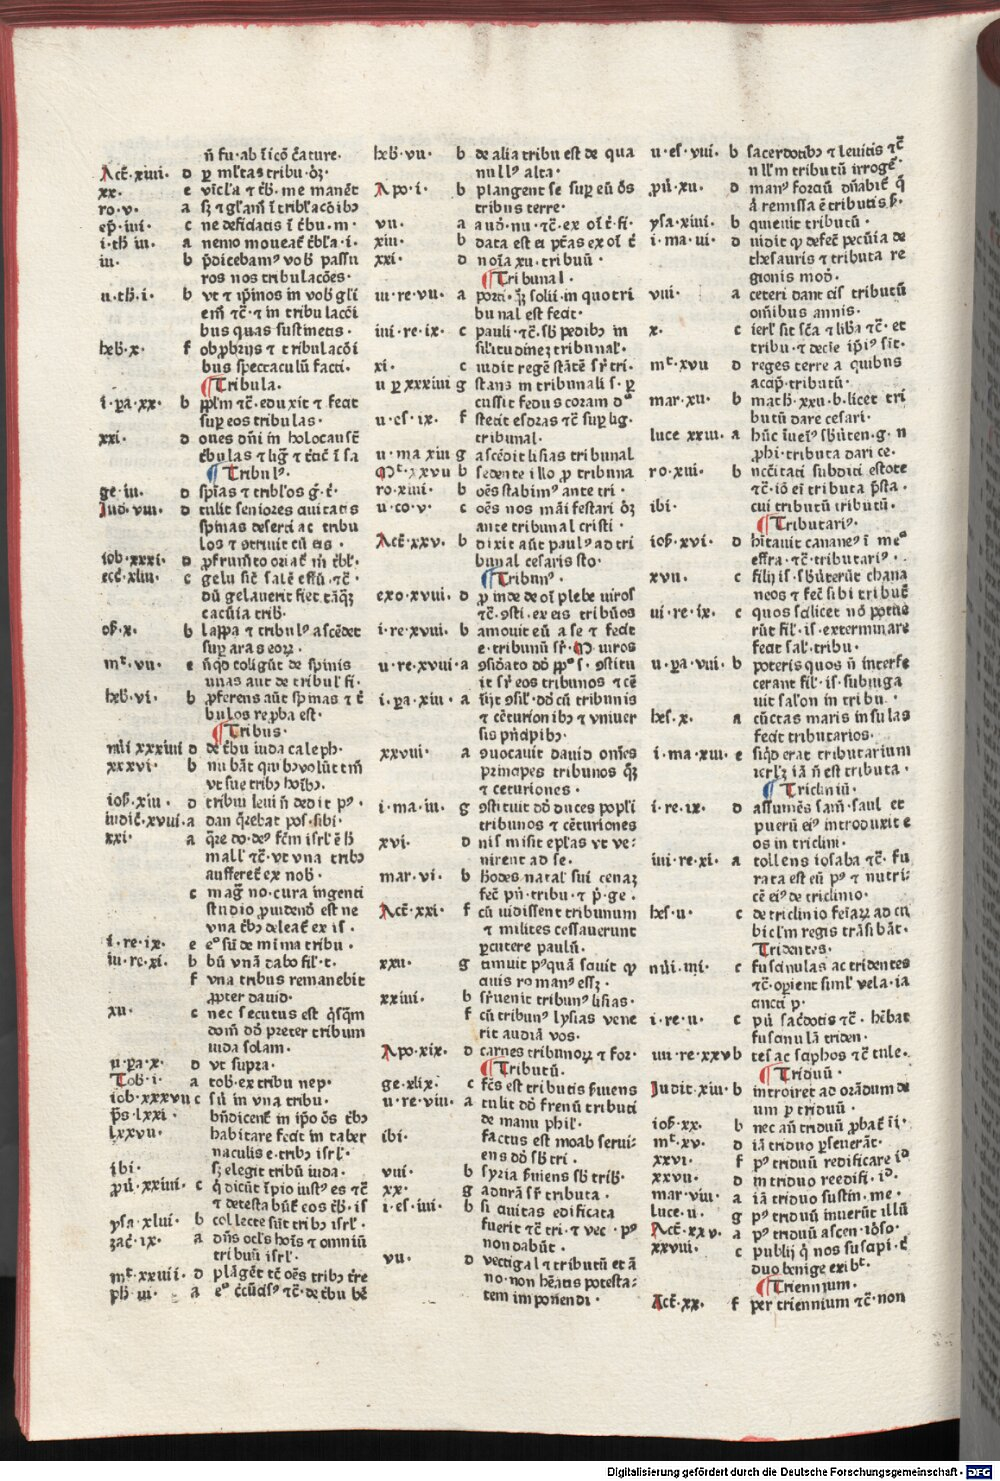 n̄ fu·ab ī icō c̄ature·
Act̄·xiiii· d ꝑ ml̄tas tribu·oꝫ·
xx· e vīcl̄a ⁊ t̄b̄·me manēt
ro·v· a sꝫ ⁊ gl̄am̄ ī tribl̄acōibꝫ
ep̄·iii· c ne deficiatis ī t̄bu·m·
i·th̄ iii· a nemo moueat̄ t̄bl̄a·i·
iii· b p̄dicebamꝰ vob̄ passu
ros nos tribulacōes·
ii·th̄·i· b vt ⁊ ip̄inos in vob̄ gl̄i
em̄ ⁊c̄·⁊ in tribulacōi
bus quas sustinetis·
heb̄·x· f obꝓbrijs ⁊ tribulacōi
bus spectaculū facti·
¶Tribula·
i·ꝑa·xx· b ppl̄m ⁊c̄·eduxit ⁊ fecit
suꝑ eos tribulas·
xxi· d oues dn̄i in holocaust̄
t̄bulas ⁊ liḡ
¶Tribulꝰ·
ge·iii· d spīas ⁊ tribl̄os ḡ·t̄·
Iud̄·viii· d tulit seniores ciuitatis
spinas deserti ac tribu
los ⁊ ꝯtriuit cū eis·
iob·xxxi· d ꝓ frumēto oriat̄ m̄ t̄bl̄·
ecc̄·xliii· c gelu sic̄ salē effū·⁊c̄·
dū gelauerit fiet tāqꝫ
cacūia trib̄·
os̄·x· b lappa ⁊ tribulꝰ ascēdet
suꝑ aras eoꝝ·
mt̄·vii· e nūqd colligūt de spinis
unas aut de tribul̄ fi·
heb̄·vi· b ꝓferens aūt spinas ⁊ t̄
bulos reꝓba est·
¶Tribus·
nūi xxxiiii d de t̄bu iuda caleph·
xxxvi· b nubāt quibꝫ volūt tm̄
vt sue tribꝫ hoībꝫ·
ios̄·xiii· d tribui leui n̄ dedit pꝰ·
iudic̄·xviii·a dan q̄rebat pos̄·sibi·
xxi· a q̄re do·deꝰ fc̄m isrl̄ ē h̄
mall̄ ⁊c̄·vt vna tribꝫ
aufferet̄ ex nob̄·
c mag̃ no·cura ingenti
studio ꝓuidend̄ est ne
vna t̄bꝫ deleat̄ ex is·
i·re·ix· e eꝰ sū de minima tribu·
iii·re·xi· b bū vnā dabo fil̄·t·
f vna tribus remanebit
ꝓpter dauid·
xii· c nec secutus est qͥsqm̄
domū dd̄ preter tribum
iuda solam·
ii·ꝑa·x· d vt supra·
Tob̄·i· a tob·ex tribu nep·
iob·xxxvii c sū in vna tribu·
ps̄·lxxi· bn̄dicent̄ in ip̄o ōs t̄bꝫ
lxxvii· habitare fecit in taber
naculis e·tribꝫ isrl̄·
ibi· sꝫ elegit tribū iuda·
ꝓū·xxiiii· c q̄ dicūt īpio iustꝰ es ⁊c̄
⁊ detestabūt̄ eos t̄b̄·is
ysa·xlvi· b collecte sūt tribꝫ isrl̄·
zac̄·ix· a dn̄s ocl̄s hoīs ⁊ omniū
tribuū isrl̄·
mt̄·xxiiii· d plāgēt ⁊c̄ oēs tribꝫ t̄re
ph̄·iii· a eꝰ c̄cūcisꝰ ⁊c̄·de t̄bu bē
heb̄·vii· b de alia tribu est de qua
nullꝰ alta·
Apo·i· b plangent se suꝑ eū ōs
tribus terre·
vii· a aud̄·nu·⁊c̄·ex oī t̄·fi·
xiii· b data est ei pt̄as ex oī t̄
xxi· d noīa xii·tribuū·
¶Tribunal·
iii·re·vii· a porti·qꝫ solii·in quo tri
bunal est fecit·
iiii·re·ix· c pauli·⁊c̄·sb̄ pedibꝫ in
sil̄itudineꝫ tribunal̄·
xi· c iudit regē stātē sr̄ tri·
ii ꝑ xxxiiii g stans in tribunali s·ꝑ
cussit fedus coram dꝰ
ii·es·ix· f stetit esdras ⁊c̄ suꝑ lig·
tribunal·
ii·ma xiii g ascēdit lisias tribunal
Mt̄·xxvii b sedente illo ꝓ tribuna
ro·xiiii· b oēs stabimꝰ ante tri·
ii·co·v· c oēs nos māifestari oꝫ
ante tribunal cristi·
Act̄·xxv· b dixit aūt paulꝰ ad tri
bunal cesaris sto·
¶Tribunꝰ·
exo·xviii· d ꝓinde de oī plebe uiros
⁊c̄·ꝯsti·ex eis tribūos
i·re·xviii· b amouit eū a se ⁊ fecit
e·tribunū sr̄·M·uiros
ii·re·xviii·a ꝯsid̄ato dd̄ ppꝰ s·ꝯstitu
it sr̄ eos tribunos ⁊ cē
i·ꝑa·xiii· a iijt ꝯsil̄·dd̄ cū tribunis
⁊ cēturionibꝫ ⁊ vniuer
sis pn̄cipibꝫ·
xxviii· a ꝯuocauit dauid omēs
principes tribunos qꝫ
⁊ ceturiones·
i·ma·iii· g ꝯstituit dd̄ duces popl̄i
tribunos ⁊ cēturiones
xvi· d nis̄ misit epl̄as vt ve⸗
nirent ad se·
mar·vi· b h̄odes natal̄ sui cenaꝫ
fec̄ pn̄·tribu·⁊ p̄·ge·
Act̄·xxi· f cū uidissent tribunum
⁊ milites cessauerunt
ꝑcutere paulū·
xxii· g timuit pꝰquā sciuit ꝙ
ciuis romanꝰ essꝫ·
xxiiii· b sr̄uenit tribunꝰ lisias·
f cū tribunꝰ lysias vene
rit audiā vos·
Apo·xix· d carnes tribunoꝝ ⁊ for·
¶Tributū·
ge·xlix· c fc̄s est tributis s̄uiens
ii·re·viii· a tulit dd̄ frenū tributi
de manu phil̄·
ibi· factus est moab serui⸗
ens dd̄ sb̄ tri·
viii· b syria s̄uiens sb̄ trib̄·
xx· g adurā sr̄ tributa·
i·es·iiii· b si ciuitas edificata
fuerit ⁊c̄ tri·⁊ vec·pꝰ
non dabūt·
vii· d vectigal ⁊ tributū et ā
no·non hēatis potesta⸗
tem imponendi·
ii·es·viii· b sacerdotibꝫ ⁊ leuitis ⁊c̄
nll̄m tributū irroge·
ꝓū·xii· d manꝰ forciū dn̄abit̄ q̄
ā remissa ē tributis s̄·
ysa·xiiii· b quieuit tributū·
i·ma·vi· d uidit ꝙ defec̄ pecūia de
thesauris ⁊ tributa re
gionis mod̄·
viii· a ceteri dant eis tributū
om̄ibus annis·
x· c ierl̄ sit sc̄a ⁊ lib̄a ⁊c̄·et
tribu·⁊ decie ip̄iꝰ sit·
mt̄·xvii d reges terre a quibus
accip̄·tributū·
mar·xii· b math̄·xxii·b·licet tri
butū dare cesari·
luce xxiii· a hūc īueīꝰ sb̄uten·g·n
ꝓhi·tributa dari ce·
ro·xiii· b nccītati subditi estote
⁊c̄·iō eī tributa p̄sta·
ibi· cui tributū tributū·
¶Tributariꝰ·
ios̄·xvi· d hītauit cananeꝰ ī meꝰ
effra·⁊c̄·tributariꝰ·
xvii· c filij is·sb̄uterūt chana
neos ⁊ fec̄ sibi tribut̄
iii·re·ix· c quos scilicet nō potue
rūt fil̄·is·exterminare
fecit sal̄·tribu·
ii·ꝑa·viii· b poteris quos n̄ interfe
cerant fil̄·is·subiuga
uit salon in tribu·
hes̄·x· a cūctas maris insulas
fecit tributarios·
i·ma·xiii· e siqͥd erat tributarium
ierl̄ꝫ iā n̄ est tributa·
¶Tricliniū·
i·re·ix· d assumēs sam̄·saul et
puerū eiꝰ introduxit e
os in triclini·
iiii·re·xi· a tollens iosaba ⁊c̄·fu
rata est eū pꝰ ⁊ nutri⸗
cē eiꝰ de triclinio·
hes·ii· c de triclinio feīaꝝ ad cu
bicl̄m regis trāsibāt·
Tridentes·
nūi·iiii· c fuscinulas ac tridentes
⁊c̄·oꝑient siml̄ vela·ia
cincti p·
i·re·ii· c pū sac̄dotis ⁊c̄·hēbat
fuscinulā triden·
iiii·re·xxv b tes ac sciphos ⁊c̄ tule·
¶Triduū·
Iudit·xiii b introiret ad orādum de
um ꝑ triduū·
ios̄·xx· b nec an̄ triduū ꝓbat̄ īi·
mt̄·xv· d iā triduo ꝑseuerāt·
xxvi· f pꝰ triduū redificare id̄
xxvii· d in triduo reedifi·id̄·
mar·viii· a iā triduo sustin·me·
luce·ii· g pꝰ triduū inuenīt illū
Act̄·xxv· a pꝰ triduū ascen·ioso·
xxviii· c publij q̄ nos suscipi·t̄
duo benige exibt̄·
¶Triennium·
Act̄·xx· f per triennium ⁊c̄·non
Digitalisierung gefördert durch die Deutsche Forschungsgemeinschaft - DFG